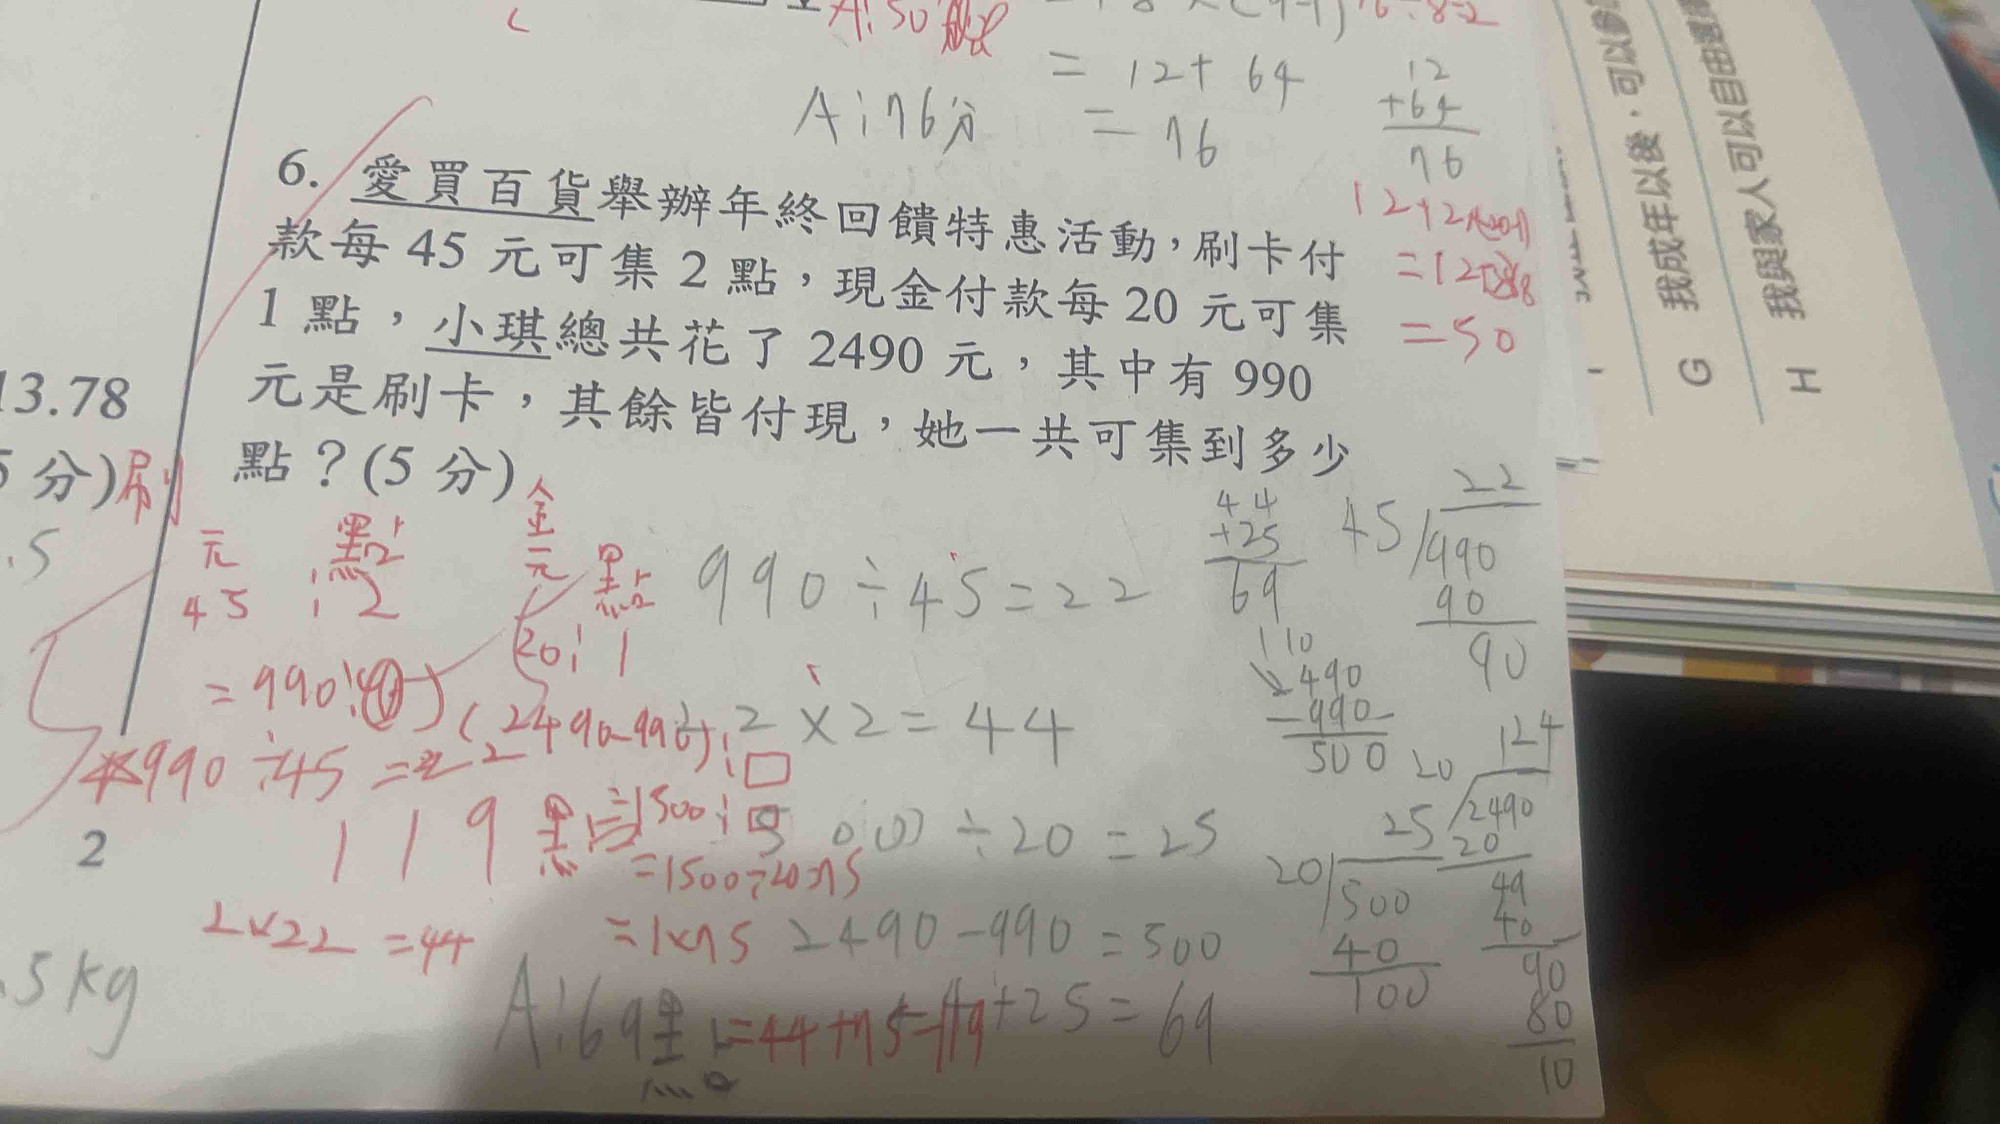 = 12 + 64
A:76分
= 76
12
+64
76
6. 愛買百貨舉辦年終回饋特惠活動，刷卡付
款每 45 元可集 2 點，現金付款每 20 元可集
1 點，小琪總共花了 2490 元，其中有 990
元是刷卡，其餘皆付現，她一共可集到多少
點？(5 分)
= 50
13.78
分) 刷
.5
元 點
45 : 2
金
元 點
20 : 1
990÷45=22
44
+25
69
22
45 990
90
90
= 990 :
(2490-990) : □
2×2=44
990÷45=22
110
490
-990
500
119 點
=1500 : □
÷20=25
=1500÷20=75
2
2×22=44
=1×75
2490-990=500
25
20 500
40
100
124
20 2490
20
49
40
90
80
10
.5kg
A:69點
=44+75=119
+25=69
我成年以後，可以參
G
我與家人可以自由選
H